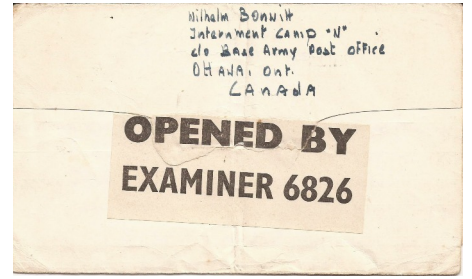 Wilhelm Bonwitt
Internment Camp "N"
c/o Base Army Post Office
Ottawa, Ont.
Canada
OPENED BY
EXAMINER 6826